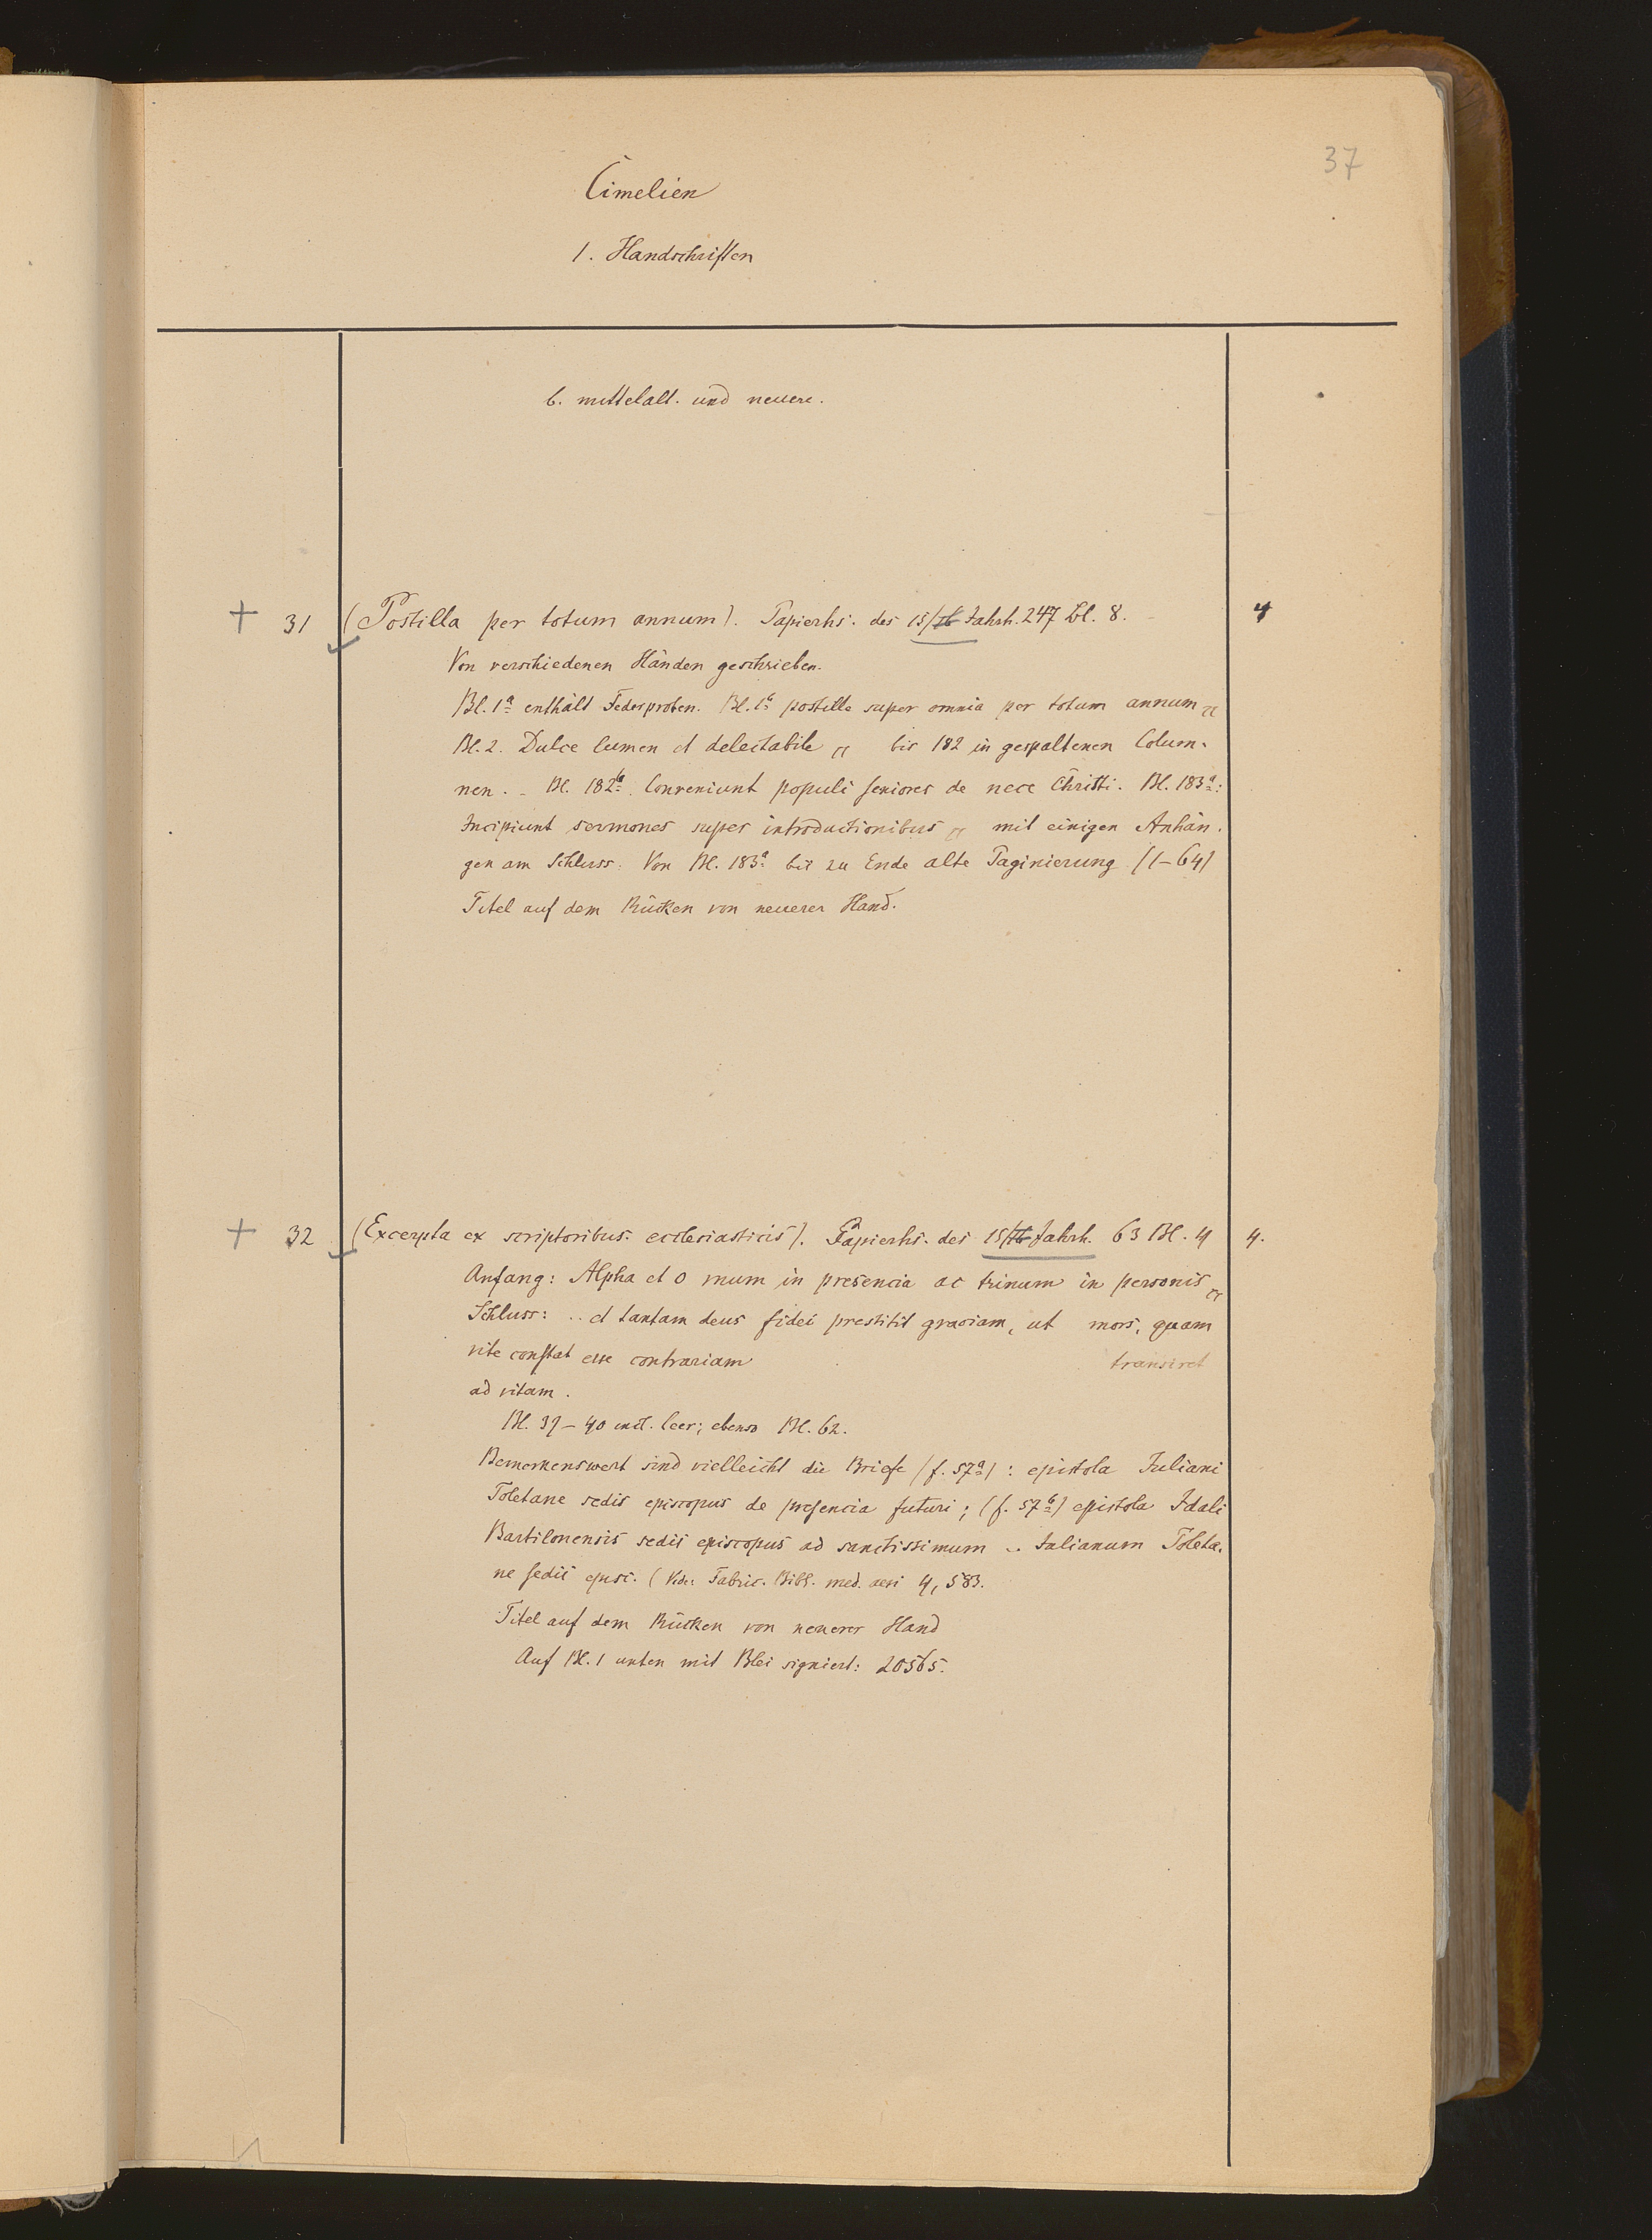 37
Cimelien
1. Handschriften
b. mittelalt. und neuere.
+ 31 (Postilla per totum annum). Papierhs. des 15/16 Jahrh. 247 Bl. 8. 4
Von verschiedenen Händen geschrieben.
Bl. 1a enthält Federproben. Bl. 1b postille super omnia per totum annum
Bl. 2. Dulce lumen et delectabile bis 182 in gespaltenen Colum-
nen. - Bl. 182b. Conveniunt populi seniores de nece Christi. Bl. 183a:
Incipiunt sermones super introductionibus mit einigen Anhän-
gen am Schluss. Von Bl. 183a bis zu Ende alte Paginierung (1-64)
Titel auf dem Rücken von neuerer Hand.
+ 32 (Excerpta ex scriptoribus ecclesiasticis). Papierhs. des 15/16 Jahrh. 63 Bl. 4 4.
Anfang: Alpha et O unum in presencia ac trinum in personis
Schluss: .. et tantam deus fidei prestitit graciam, ut mors, quam
vite constat esse contrariam transiret
ad vitam.
Bl. 37-40 incl. leer; ebenso Bl. 62.
Bemerkenswert sind vielleicht die Briefe (f. 57a): epistola Juliani
Toletane sedis episcopus de presencia futuri; (f. 57b) epistola Idali
Bartilonensis sedis episcopus ad sanctissimum .. Julianum Toleta-
ne sedis episc. (Vide: Fabric. Bibl. med. aevi 4, 583.
Titel auf dem Rücken von neuerer Hand
Auf Bl. 1 unten mit Blei signiert: 20565.